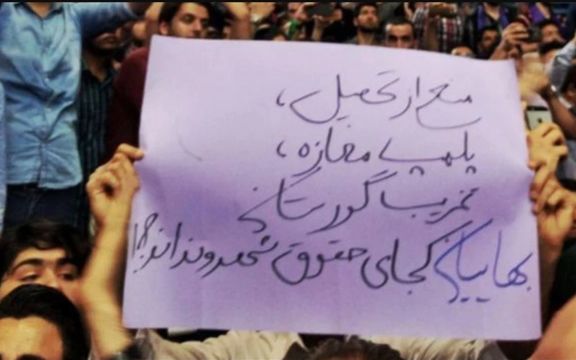 منع از تحصیل،
پلمپ مغازه،
تخریب گورستان
بهاییان کجای حقوق شهروندانند؟!